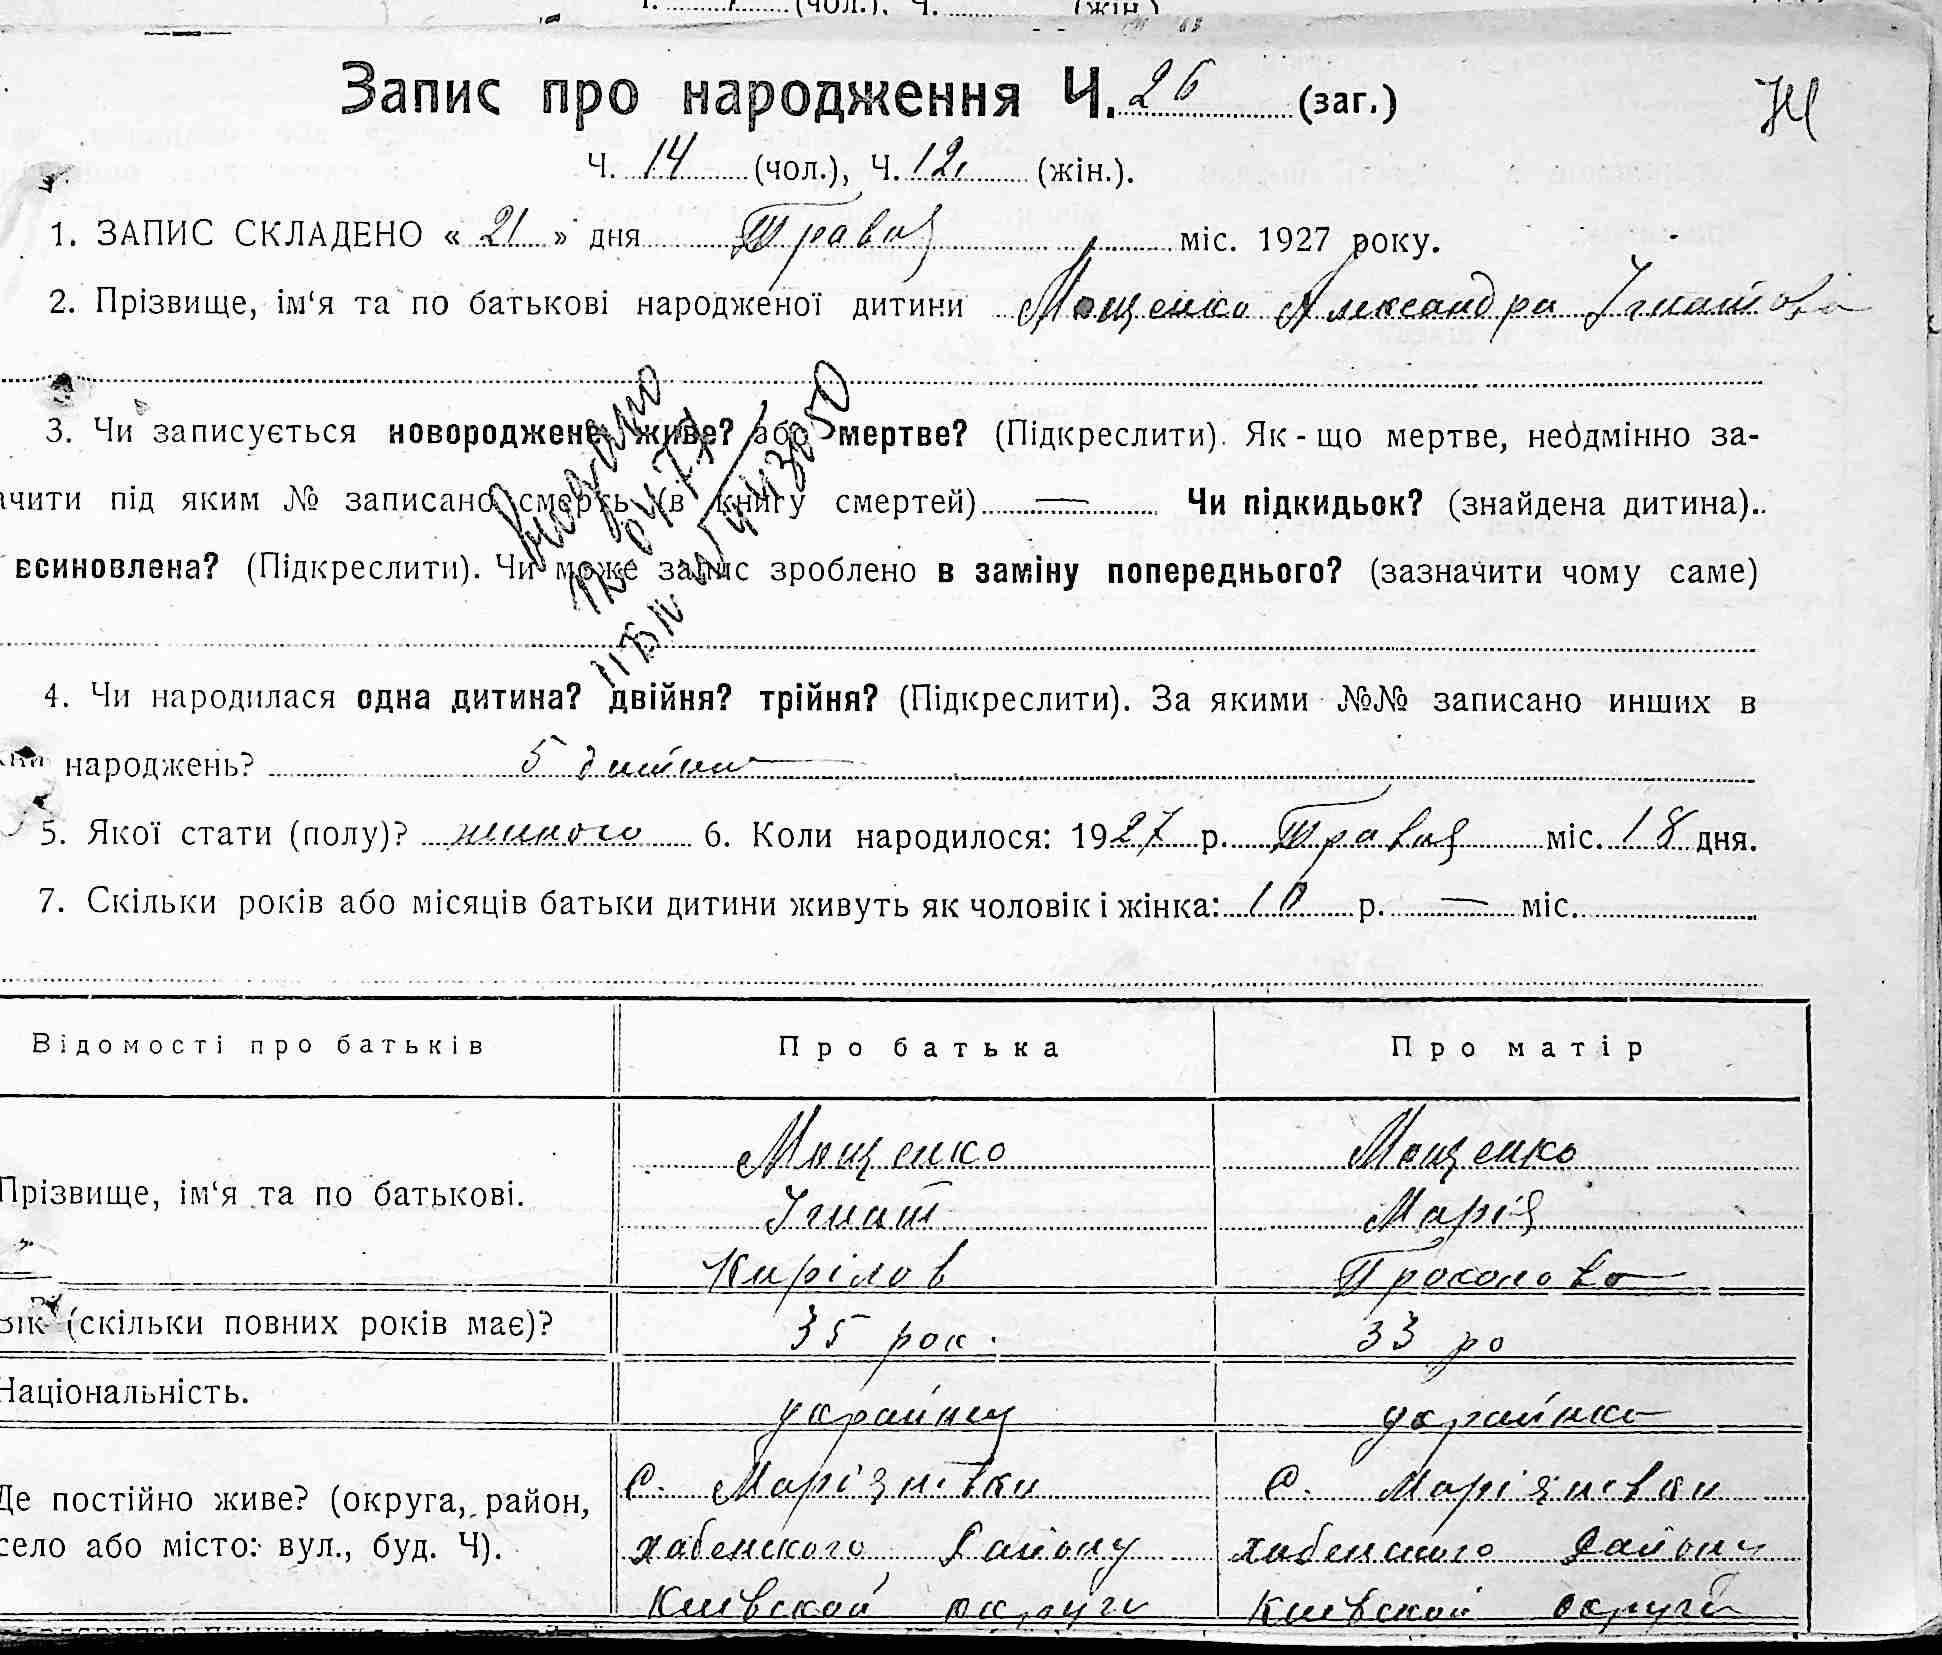 Запис про народження Ч. 26 (заг.)
Ч. 14 (чол.), Ч. 12 (жін.).
1. ЗАПИС СКЛАДЕНО « 21 » дня Травня міс. 1927 року.
2. Прізвище, ім‘я та по батькові народженої дитини Мощенко Александра Ігнатова
3. Чи записується новороджене живе? або мертве? (Підкреслити). Як-що мертве, неодмінно за-
ачити під яким № записано смерть (в книгу смертей) — Чи підкидьок? (знайдена дитина)..
есиновлена? (Підкреслити). Чи може запис зроблено в заміну попереднього? (зазначити чому саме)
4. Чи народилася одна дитина? двійня? трійня? (Підкреслити). За якими №№ записано инших в
народжень? 5 дитина
5. Якої стати (полу)? жиного 6. Коли народилося: 1927 р. Травня міс. 18 дня.
7. Скільки років або місяців батьки дитини живуть як чоловік і жінка: 10 р. — міс.
Відомості про батьків Про батька Про матір
Прізвище, ім‘я та по батькові.
Мощенко Мощенко
Ігнат Марія
Кирілов
Вік (скільки повних років має)? 35 рок. 33 ро
Національність. украйнец украйнка
Де постійно живе? (округа, район,
село або місто: вул., буд. Ч).
с. Маріяновки с. Маріяновки
хабенского Району хабенского Району
Киевской округи Киевской округи